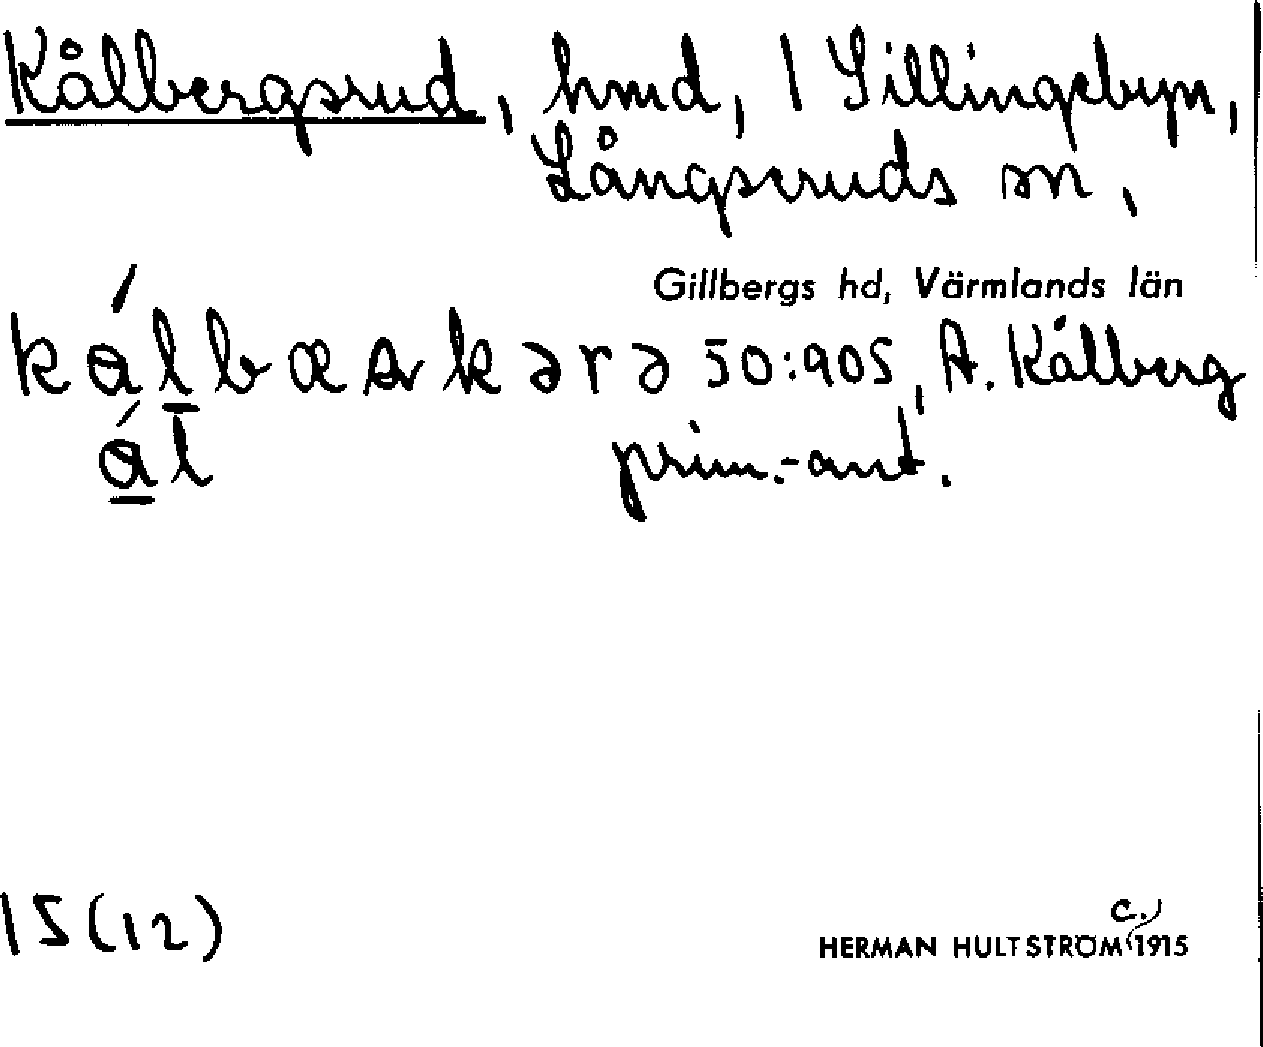 Kålbergsrud, hmd, 1 Sillingebyn,
Långseruds sn,
Gillbergs hd, Värmlands län
kålbæskərə 50:905, A. Kålberg
ål prim.-ant.
15(12)
HERMAN HULTSTRÖM (c.) 1915